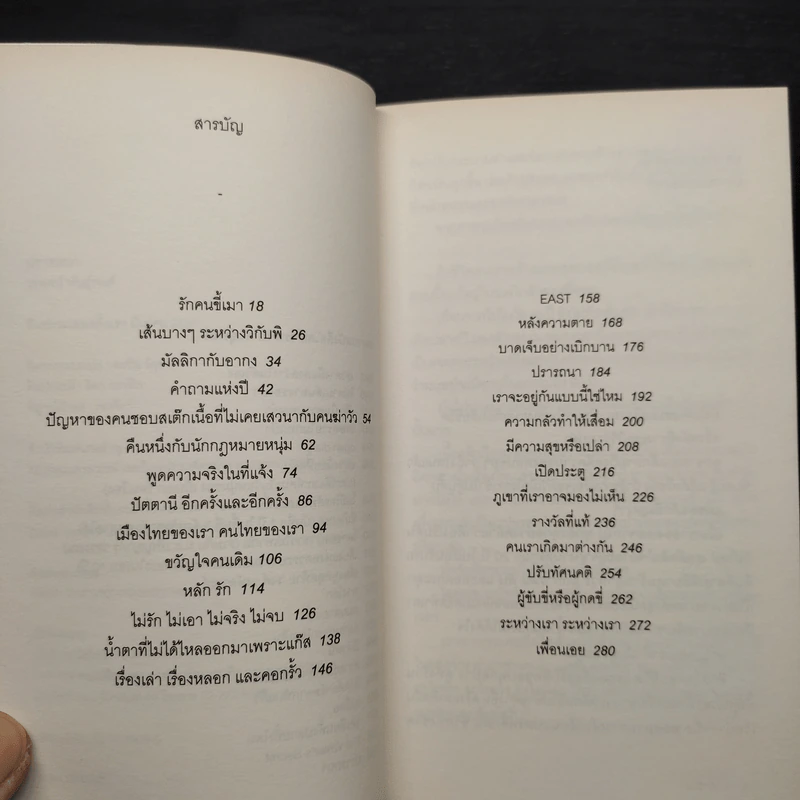 สารบัญ
-
รักคนขี้เมา 18
เส้นบางๆ ระหว่างวิกับพิ 26
มัลลิกากับอากง 34
คำถามแห่งปี 42
ปัญหาของคนชอบสเต๊กเนื้อที่ไม่เคยเสวนากับคนฆ่าวัว 54
คืนหนึ่งกับนักกฎหมายหนุ่ม 62
พูดความจริงในที่แจ้ง 74
ปัตตานี อีกครั้งและอีกครั้ง 86
เมืองไทยของเรา คนไทยของเรา 94
ขวัญใจคนเดิม 106
หลัก รัก 114
ไม่รัก ไม่เอา ไม่จริง ไม่จบ 126
น้ำตาที่ไม่ได้ไหลออกมาเพราะแก๊ส 138
เรื่องเล่า เรื่องหลอก และคอกรั้ว 146
EAST 158
หลังความตาย 168
บาดเจ็บอย่างเบิกบาน 176
ปรารถนา 184
เราจะอยู่กันแบบนี้ใช่ไหม 192
ความกลัวทำให้เสื่อม 200
มีความสุขหรือเปล่า 208
เปิดประตู 216
ภูเขาที่เราอาจมองไม่เห็น 226
รางวัลที่แท้ 236
คนเราเกิดมาต่างกัน 246
ปรับทัศนคติ 254
ผู้ขับขี่หรือผู้กดขี่ 262
ระหว่างเรา ระหว่างเรา 272
เพื่อนเอย 280